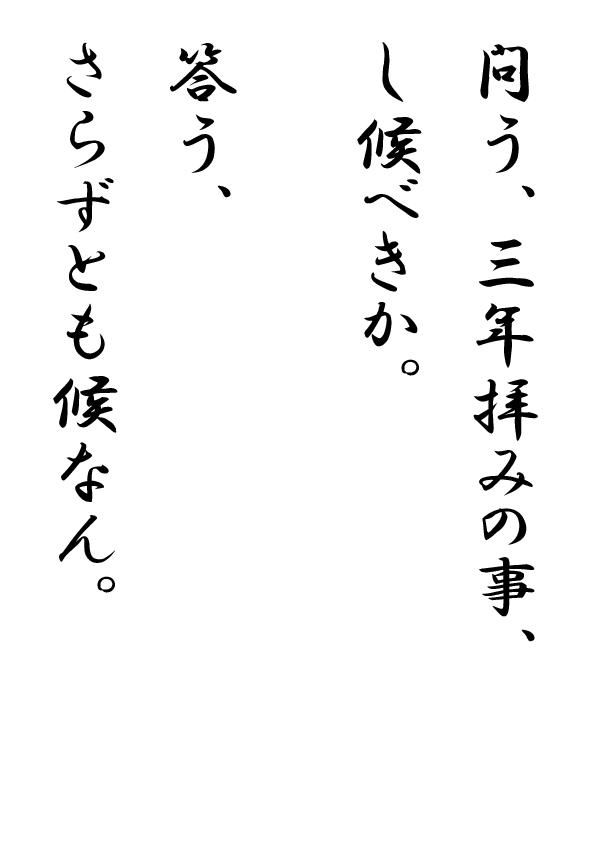 問う、三年拝みの事、
し候べきか。
答う、
さらずとも候なん。